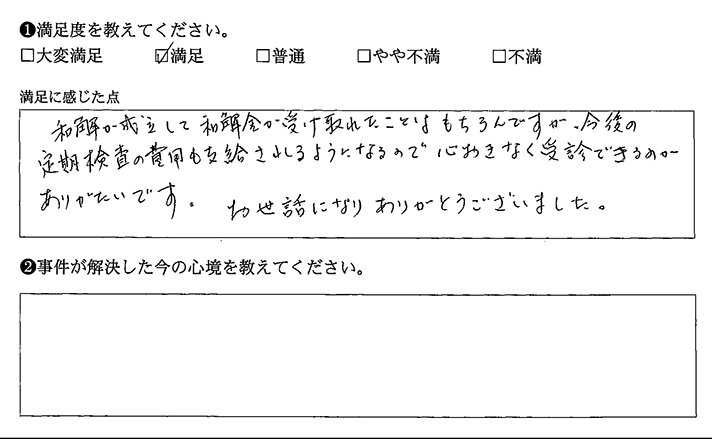 ❶満足度を教えてください。
□大変満足 ☑満足 □普通 □やや不満 □不満
満足に感じた点
和解が成立して和解金が受け取れたことはもちろんですが、今後の
定期検査の費用も支給されるようになるので心おきなく受診できるのが
ありがたいです。 お世話になりありがとうございました。
❷事件が解決した今の心境を教えてください。